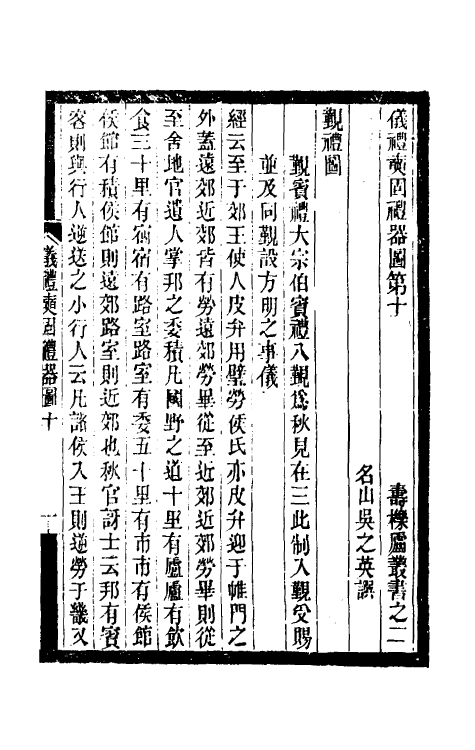 儀禮奭固禮器圖第十 壽櫟廬叢書之二
名山吳之英譔
覲禮圖
覲賓禮大宗伯賓禮八覲爲秋見在三此制入覲受賜
並及同覲設方明之事儀
經云至于郊王使人皮弁用璧勞侯氏亦皮弁迎于帷門之
外蓋遠郊近郊皆有勞遠郊勞畢從至近郊近郊勞畢則從
至舍地官遺人掌邦之委積凡國野之道十里有廬廬有飲
食三十里有宿宿有路室路室有委五十里有市市有侯館
侯館有積侯館則遠郊路室則近郊也秋官訝士云邦有賓
客則與行人逆送之小行人云凡諸侯入王則逆勞于畿又
儀禮奭固禮器圖十 一